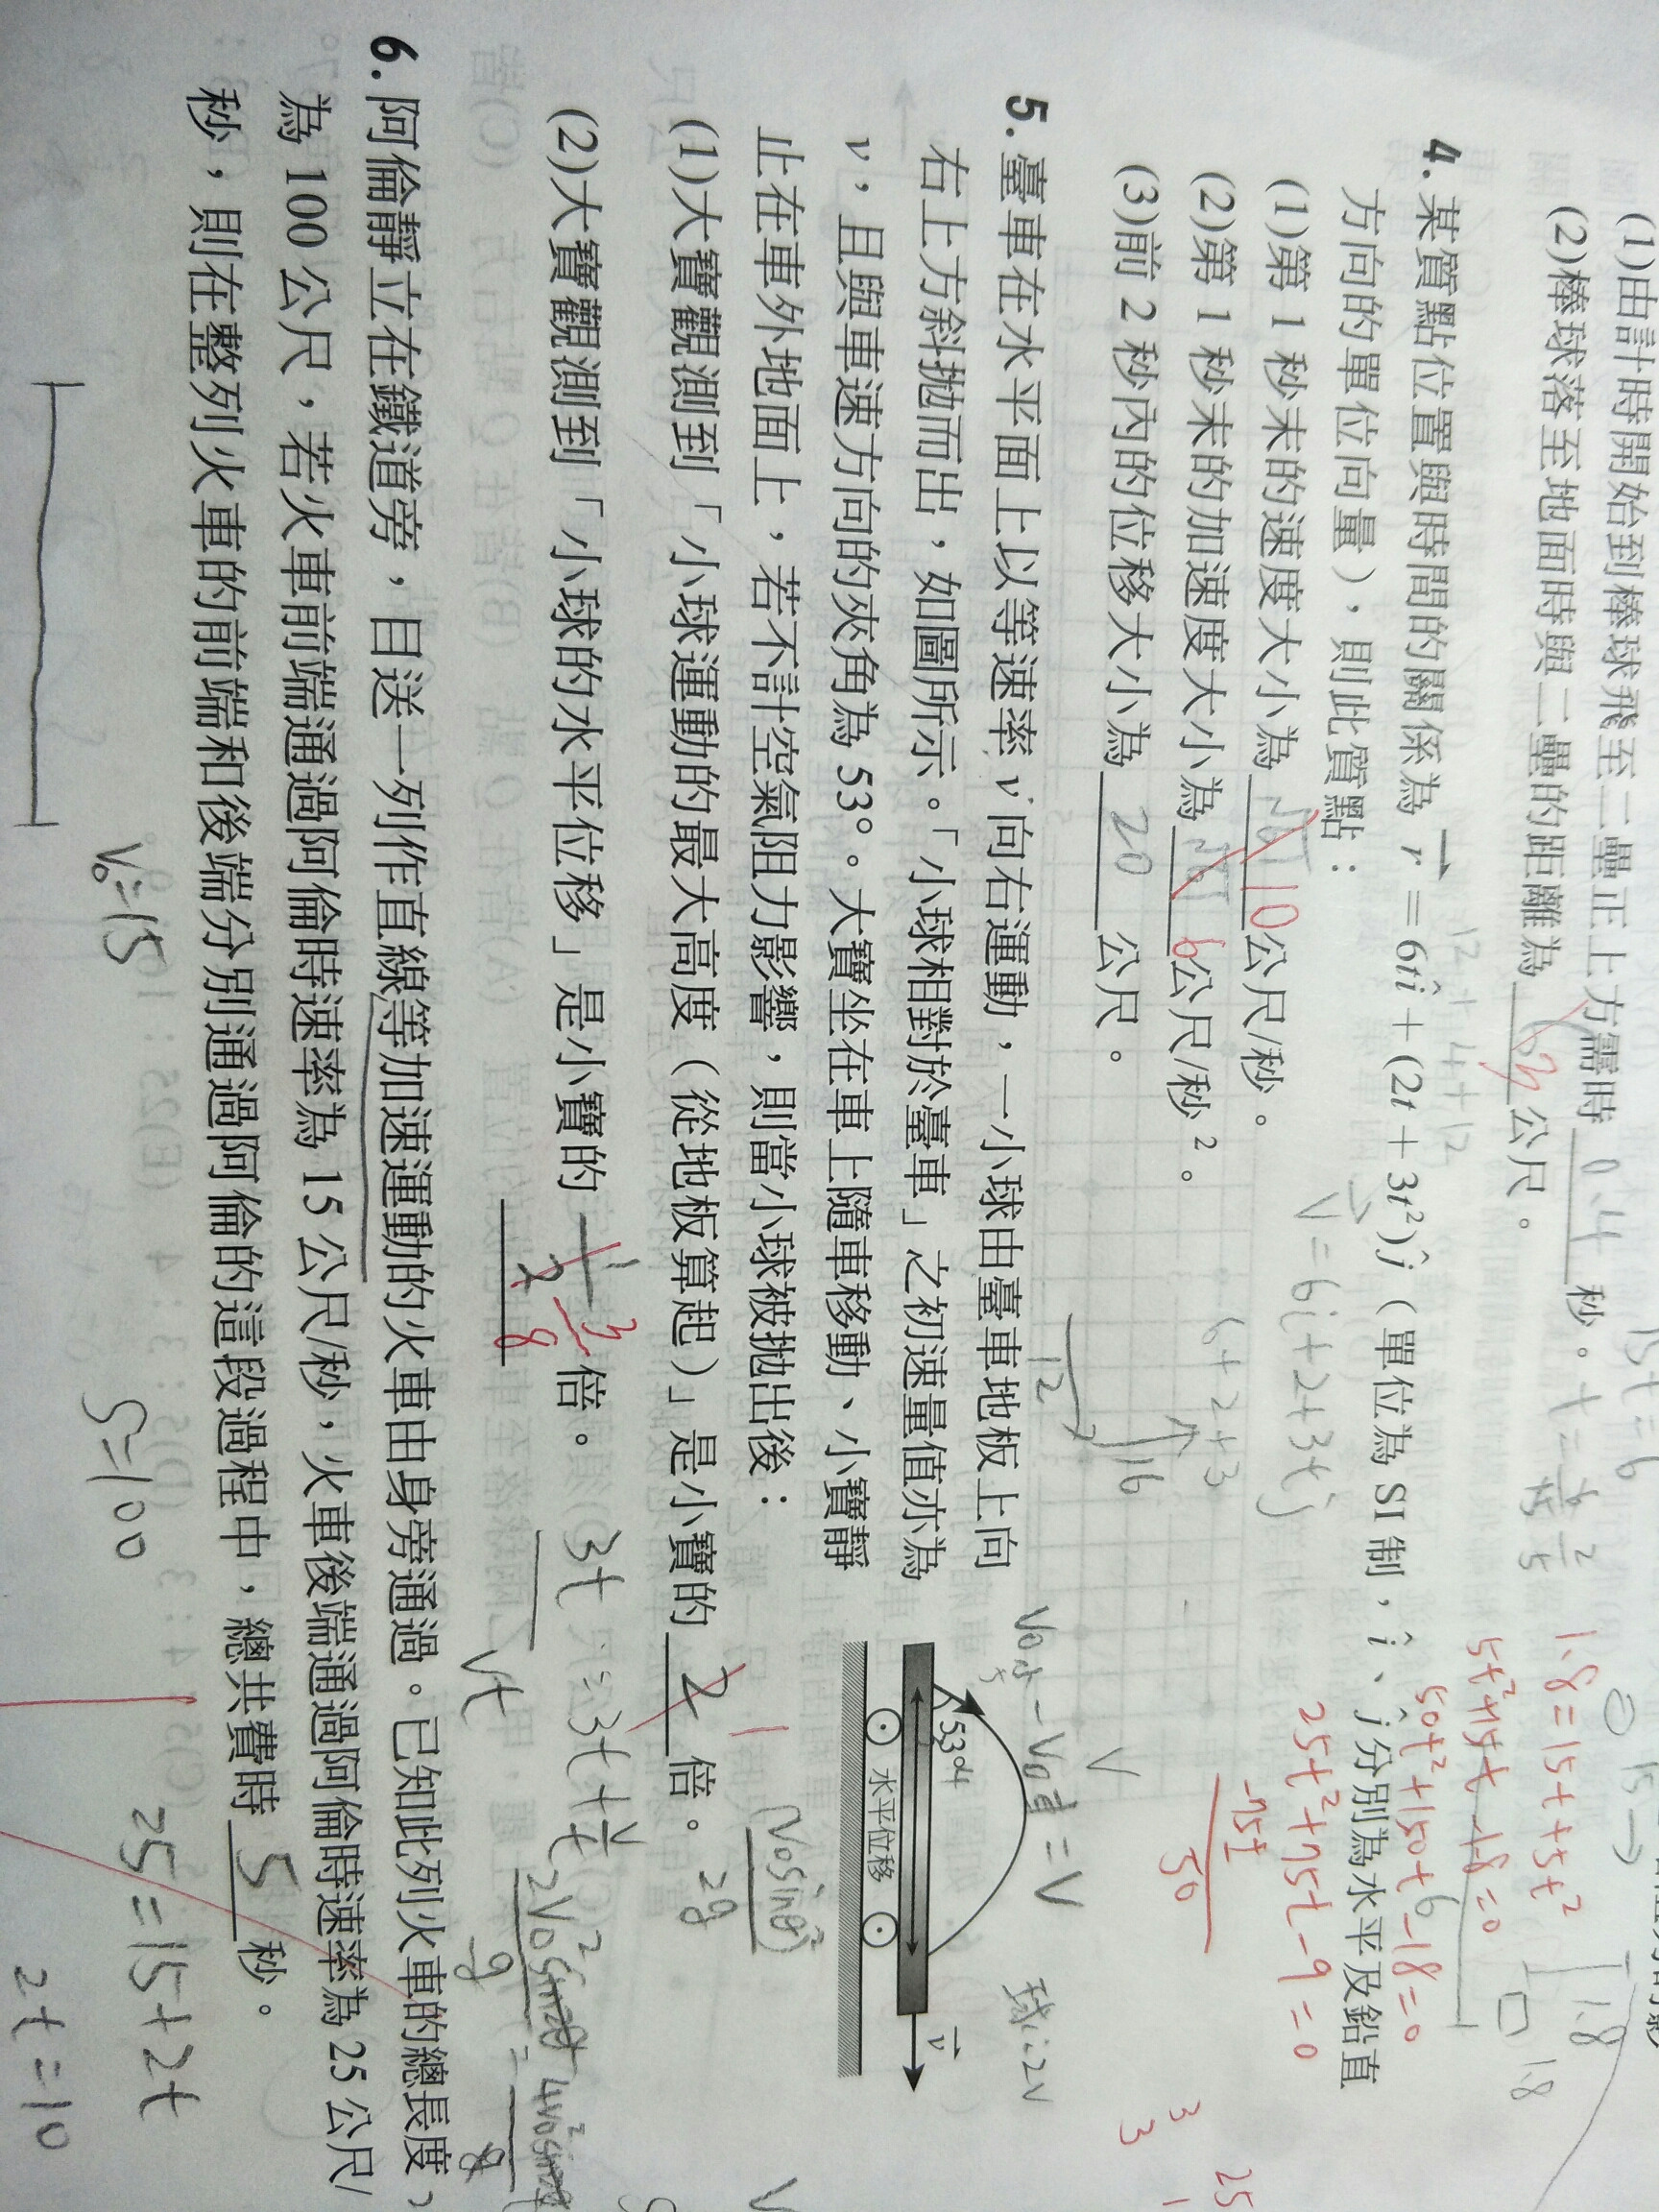 (1)由計時開始到棒球飛至二壘正上方需時 0.4 秒。
(2)棒球落至地面時與二壘的距離為 公尺。
15t=6
1.8=15t+5t²
50t²+150t-18=0
25t²+75t-9=0
1.8
1.8
4.某質點位置與時間的關係為 r = 6tî + (2t + 3t²)ĵ(單位為 SI 制,î、ĵ分別為水平及鉛直
方向的單位向量),則此質點:
(1)第 1 秒末的速度大小為 10 公尺/秒。
(2)第 1 秒末的加速度大小為 6 公尺/秒²。
(3)前 2 秒內的位移大小為 20 公尺。
12+4+12
V=6i+2+3tj
6+2+3
12
16
5.臺車在水平面上以等速率 v 向右運動,一小球由臺車地板上向
右上方斜拋而出,如圖所示。「小球相對於臺車」之初速量值亦為
v,且與車速方向的夾角為 53°。大寶坐在車上隨車移動、小寶靜
止在車外地面上,若不計空氣阻力影響,則當小球被拋出後:
(1)大寶觀測到「小球運動的最大高度(從地板算起)」是小寶的 2 1 倍。
(2)大寶觀測到「小球的水平位移」是小寶的 1/2 3/8 倍。
V
=V
球:2V
53°
水平位移
v
2g
3t
Vt
6.阿倫靜立在鐵道旁,目送一列作直線等加速運動的火車由身旁通過。已知此列火車的總長度
為 100 公尺,若火車前端通過阿倫時速率為 15 公尺/秒,火車後端通過阿倫時速率為 25 公尺/
秒,則在整列火車的前端和後端分別通過阿倫的這段過程中,總共費時 5 秒。
V₀=15
S=100
25=15+2t
2t=10